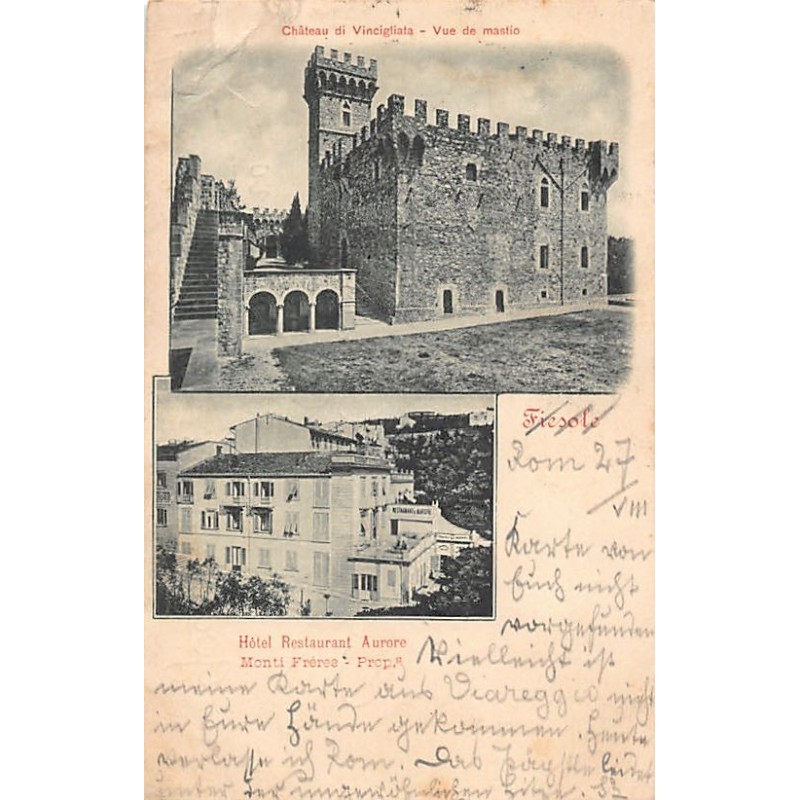 Château di Vincigliata - Vue de mastio
RESTAURANT AURORE
Fiesole
Rom 27
VIII
Karte von
Euch nicht
vorgefunden
Hôtel Restaurant Aurore
Monti Fréres - Prop.
Vielleicht ist
meine Karte aus Viareggio nicht
in Eure Hände gekommen. Heute
verlasse ich Rom. Das leidet
unter der ungewöhnlichen Hitze.